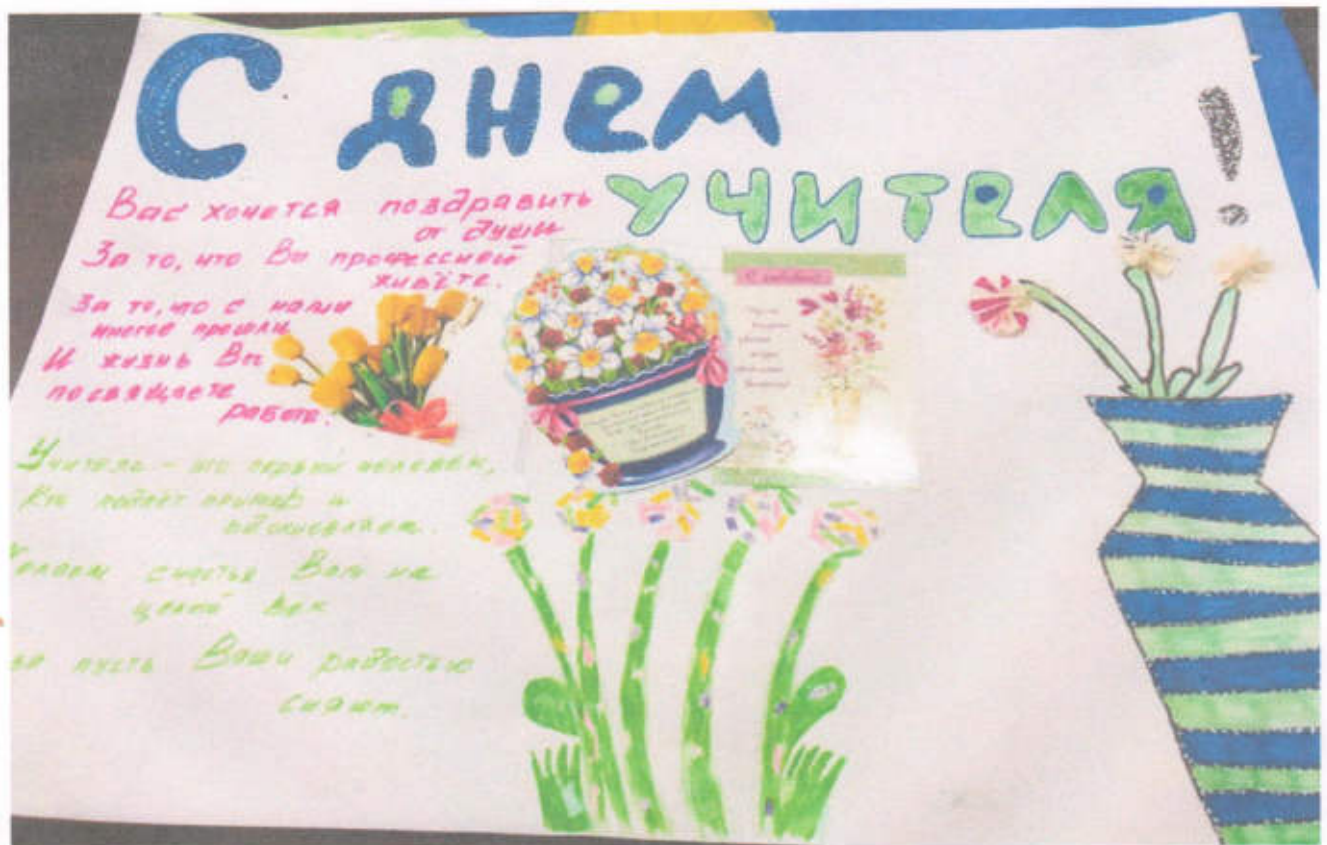 С ДНЕМ
УЧИТЕЛЯ!
Вас хочется поздравить
от души
За то, что Вы профессией
живёте.
За то, что с нами
многое прошли
И жизнь Вы
посвящаете
работе.
Учитель - это первый человек,
Кто подаёт пример и
Желаем счастья Вам на
целый век
пусть Ваши радостью
сияют.